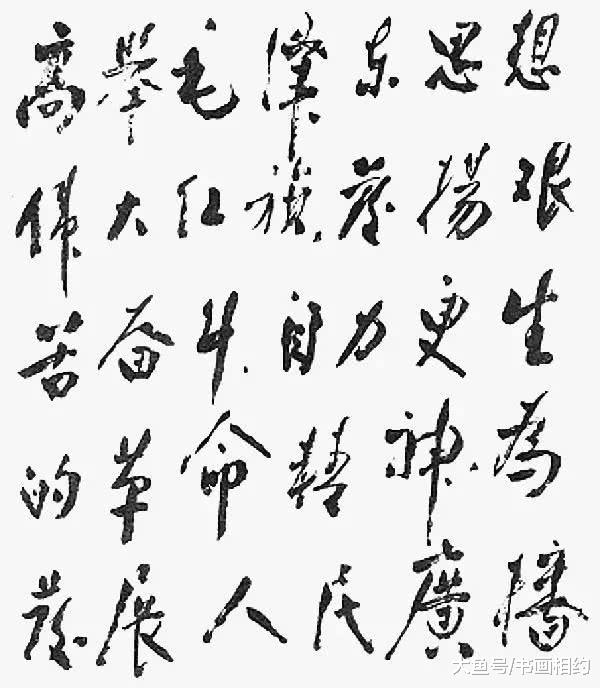 高舉毛澤东思想
偉大红旗發揚艰
苦奋斗自力更生
的革命精神為
發展人民廣播
大鱼号/书画相约